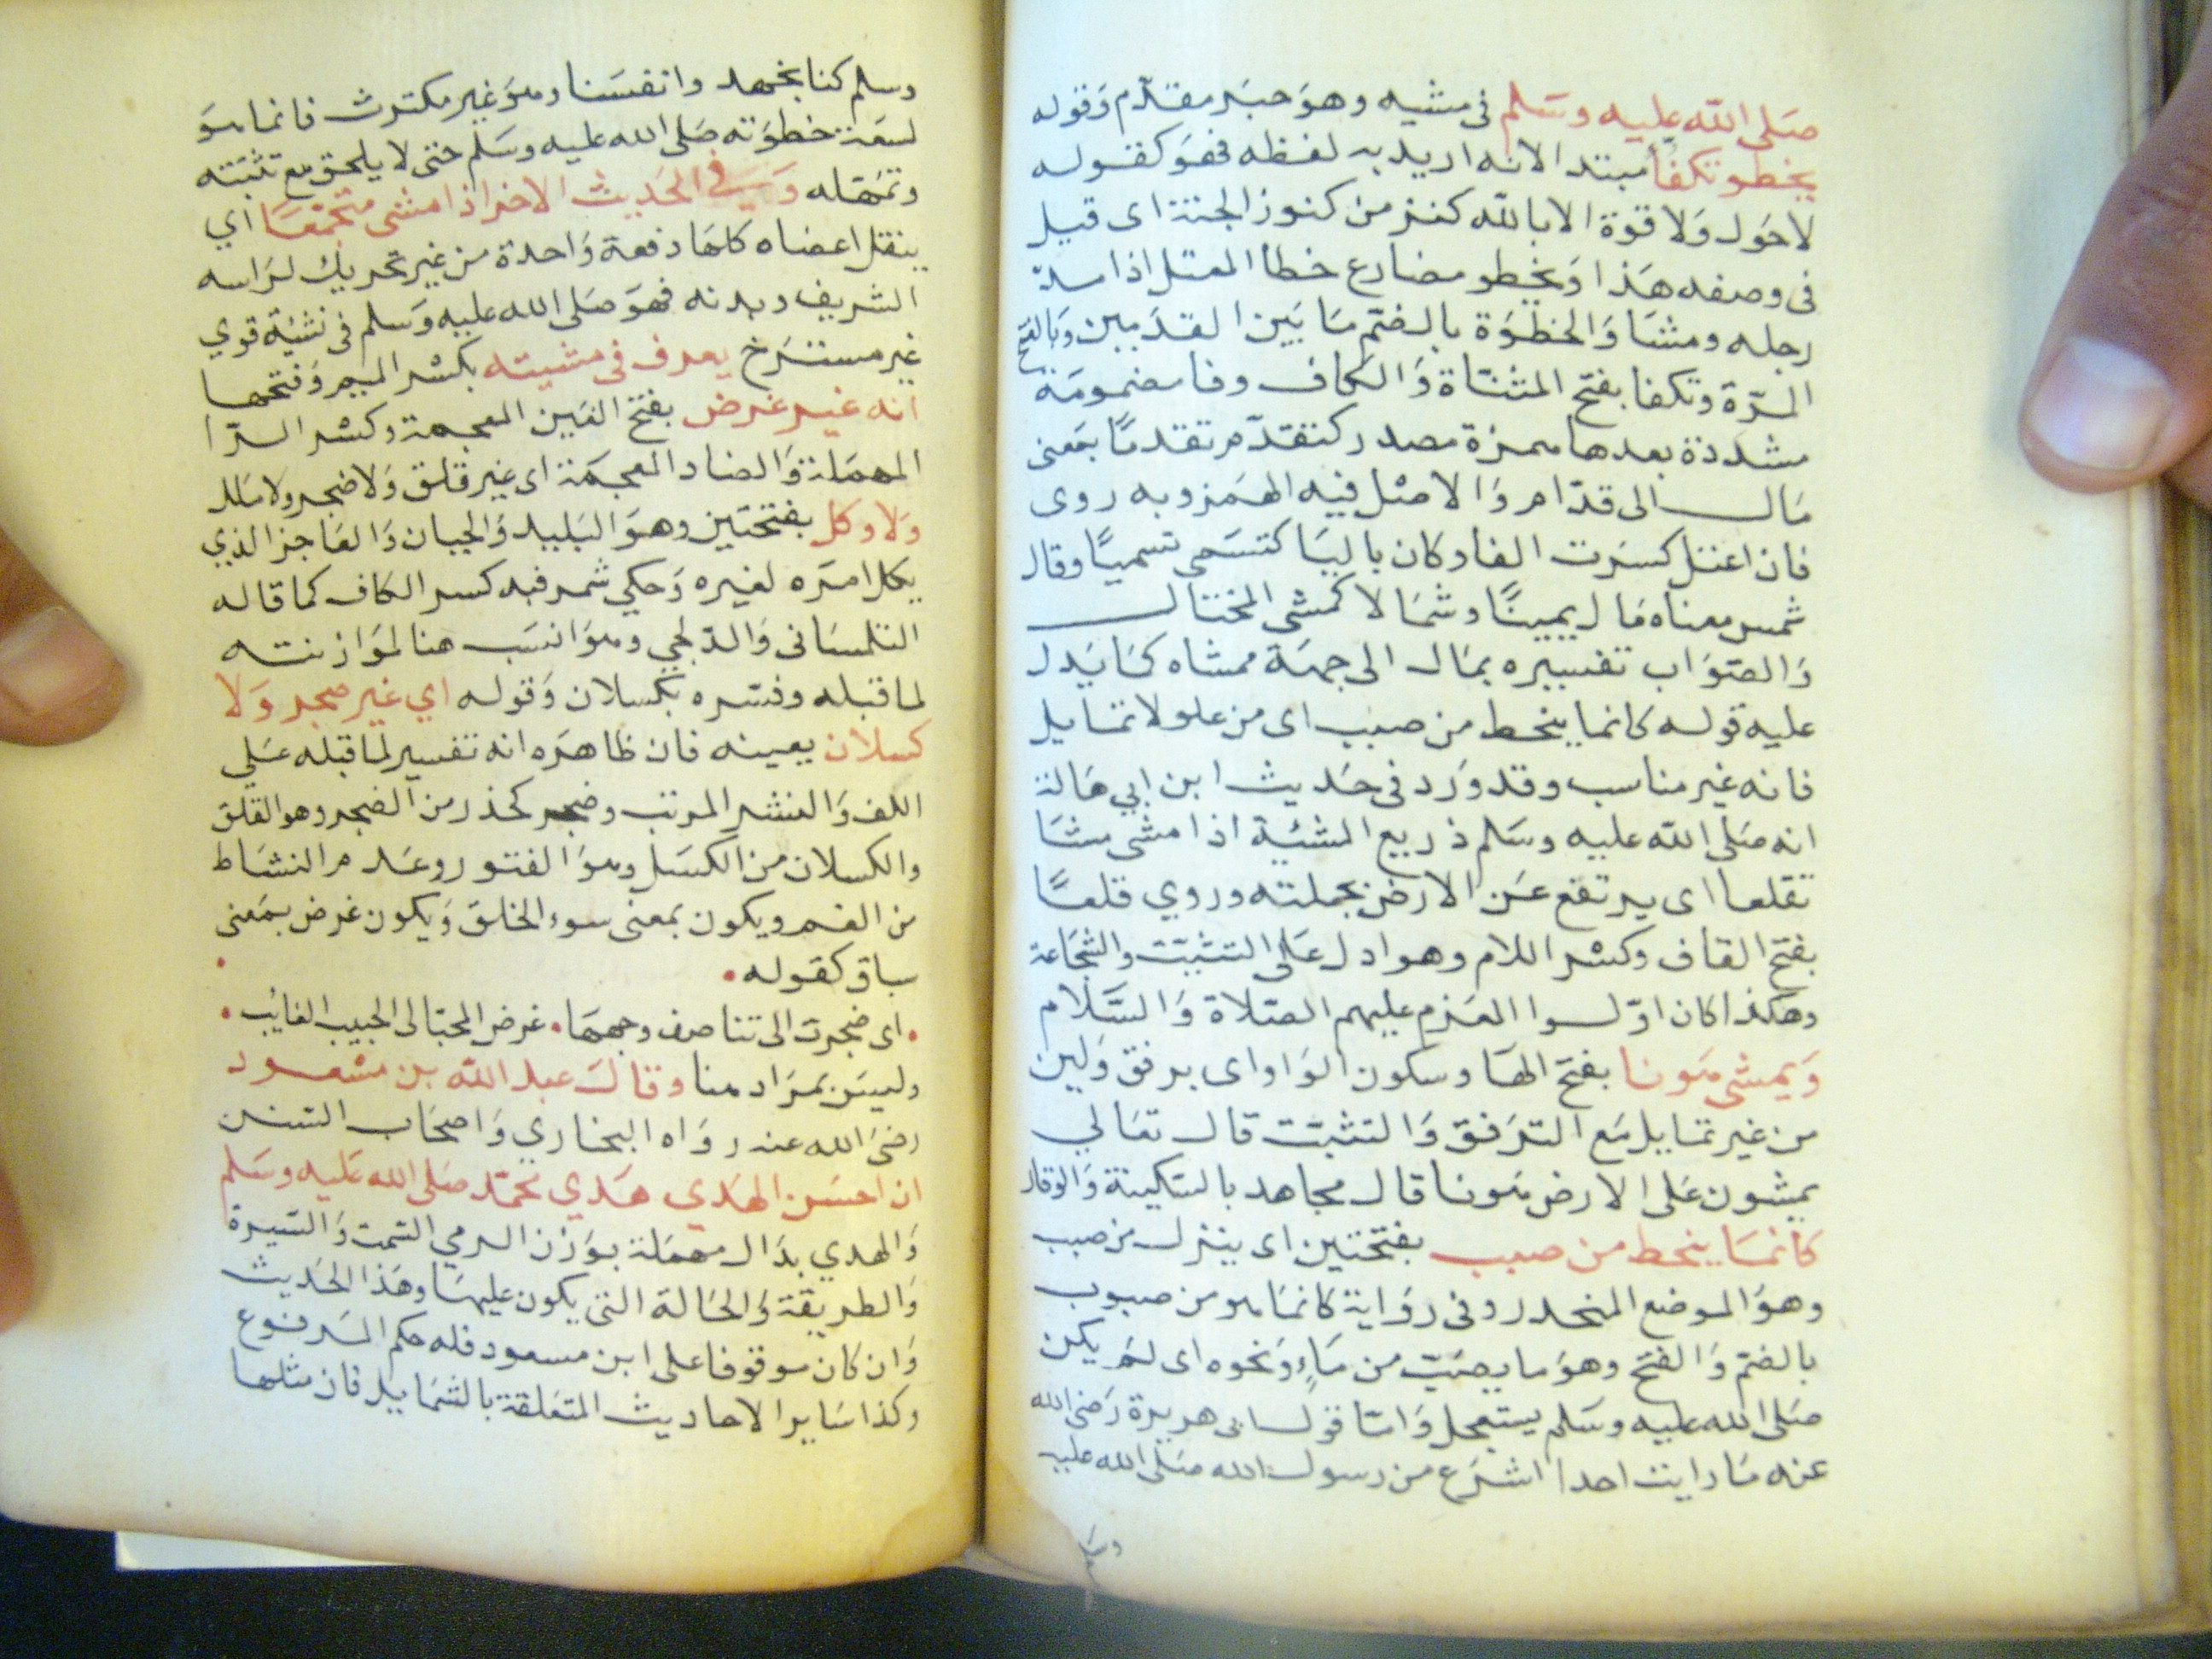 صَلى الله عليه وسَلم فى مشيه وهوَ خبَر مقدّم وَقوله
يخطو تكفأ مبتدا لانه اريد به لفظه فهوَ كقوله
لاحَول وَلا قوة الا بالله كنز من كنوز الجنة اى قيل
فى وصفه هَذا وَيخطو مضارع خطا المعتل اذا مدّ
رجله ومشا وَالخطوَة بالضمّ مَا بَين القدَمين وَبالفتح
المرّة وتكفا بفتح المثناة وَالكاف وفا مضمومَة
مشددة بعدها همزة مصدر كتقدّم تقدمًا بمَعنى
مَال الى قدّام وَالاصْل فيه الهَمز وبه روى
فان اعتل كسرَت الفا وكان باليَا كتسَمى تسميًا وقال
شمر معناه مَال يمينًا وشمَالا كمشى المختال
وَالصّوَاب تفسيره بمَال الى جهَة ممشاه كمَا يَدل
عليه قوله كانما ينحط من صبب اى من علو لا تمايل
فانه غير مناسب وقد وَرَد فى حَديث ابن ابي هَالة
انه صَلى الله عليه وسَلم ذريع المشيَة اذا مشى مشَا
تقلعا اى يرتفع عَن الارض بجملته وروي قلعًا
بفتح القاف وكسْر اللام وهو ادل عَلى التثبّت والشجَاعة
وهكذا كان اوّلوا العَزم عليهم الصّلاة وَالسَّلام
وَيمشى هَونا بفتح الهَا وسكون الوَاو اى برفق وَلين
من غير تمايل مَع الترَفق وَالتثبّت قال تعَالي
يمشون عَلى الارض هَونا قال مجاهد بالسّكينة وَالوقار
كأنمَا ينحط من صبب بفتحتين اى ينزل من صبب
وهوَ الموضع المنحدر وفى روَاية كانمَا هو من صبوب
بالضمّ وَالفتح وهوَ ما يصَبّ من مَاءٍ وَنحوه اى لمَ يكن
صَلى الله عليه وسَلم يستعجل وَامّا قول ابى هريرة رَضى الله
عنه مَا رايت احدا اسْرَع من رسول الله صَلى الله عليه
وسلم
وسلم كنا بجهد وانفسَنا وهوَ غير مكترث فانما هوَ
لسعَة خطوَته صَلى الله عليه وسَلم حتى لا يلحق مع تثبّته
وتمَهله وَفى الحَديث الاخر اذا مشى مجتمعَا اي
ينقل اعضاه كلهَا دفعة وَاحدة من غير تحريك لرَاسه
الشريف وبدنه فهوَ صَلى الله عليه وَسلم فى مَشيَة قوي
غير مسترَخ يعرف فى مشيته بكسْر الميم وَفتحها
انه غير غرض بفتح الغَين المعجمة وكسْر الرّا
المهمَلة وَالضاد المعجمَة اى غير قلق وَلا ضجر ولا مَلل
وَلا وكل بفتحتين وهوَ البَليد وَالجبان وَالعَاجز الذي
يكل امرَه لغيره وَحكي شمر فيه كسر الكاف كما قاله
التلمسَانى وَالدّلجي وهوَ انسَب هنا لموَازنته
لما قبله وفسّره بكسلان وَقوله اي غير ضجر وَلا
كسلان يعينه فان ظاهرَه انه تفسير لما قبله عَلي
اللف وَالنشر المرتب وضجر كحذر من الضجر وهو القلق
والكسلان من الكسَل وهوَ الفتور وعَدم النشَاط
من الغم ويكون بمعنى سوء الخلق وَيكون غرض بمَعنى
ساق كقوله
اى ضجرت الى تناصف وجهها غرض المحبّ الى الحبيب الغائب
وليسَ بمرَاد هنا وقال عبد الله بن مسْعود
رضىَ الله عنه روَاه البخاري وَاصحَاب السّنن
ان احسَن الهَدي هَدي محَمّد صَلى الله عَليه وسَلم
وَالهدي بدَال مهمَلة بوَزن الرمي السّمت وَالسّيرة
وَالطريقة وَالحَالة التى يكون عليهَا وهَذا الحَديث
وَان كان موقوفا على ابن مسعود فله حكم المرَفوع
وكذا سَاير الاحاديث المتعَلقة بالشمَايل فان مثلها